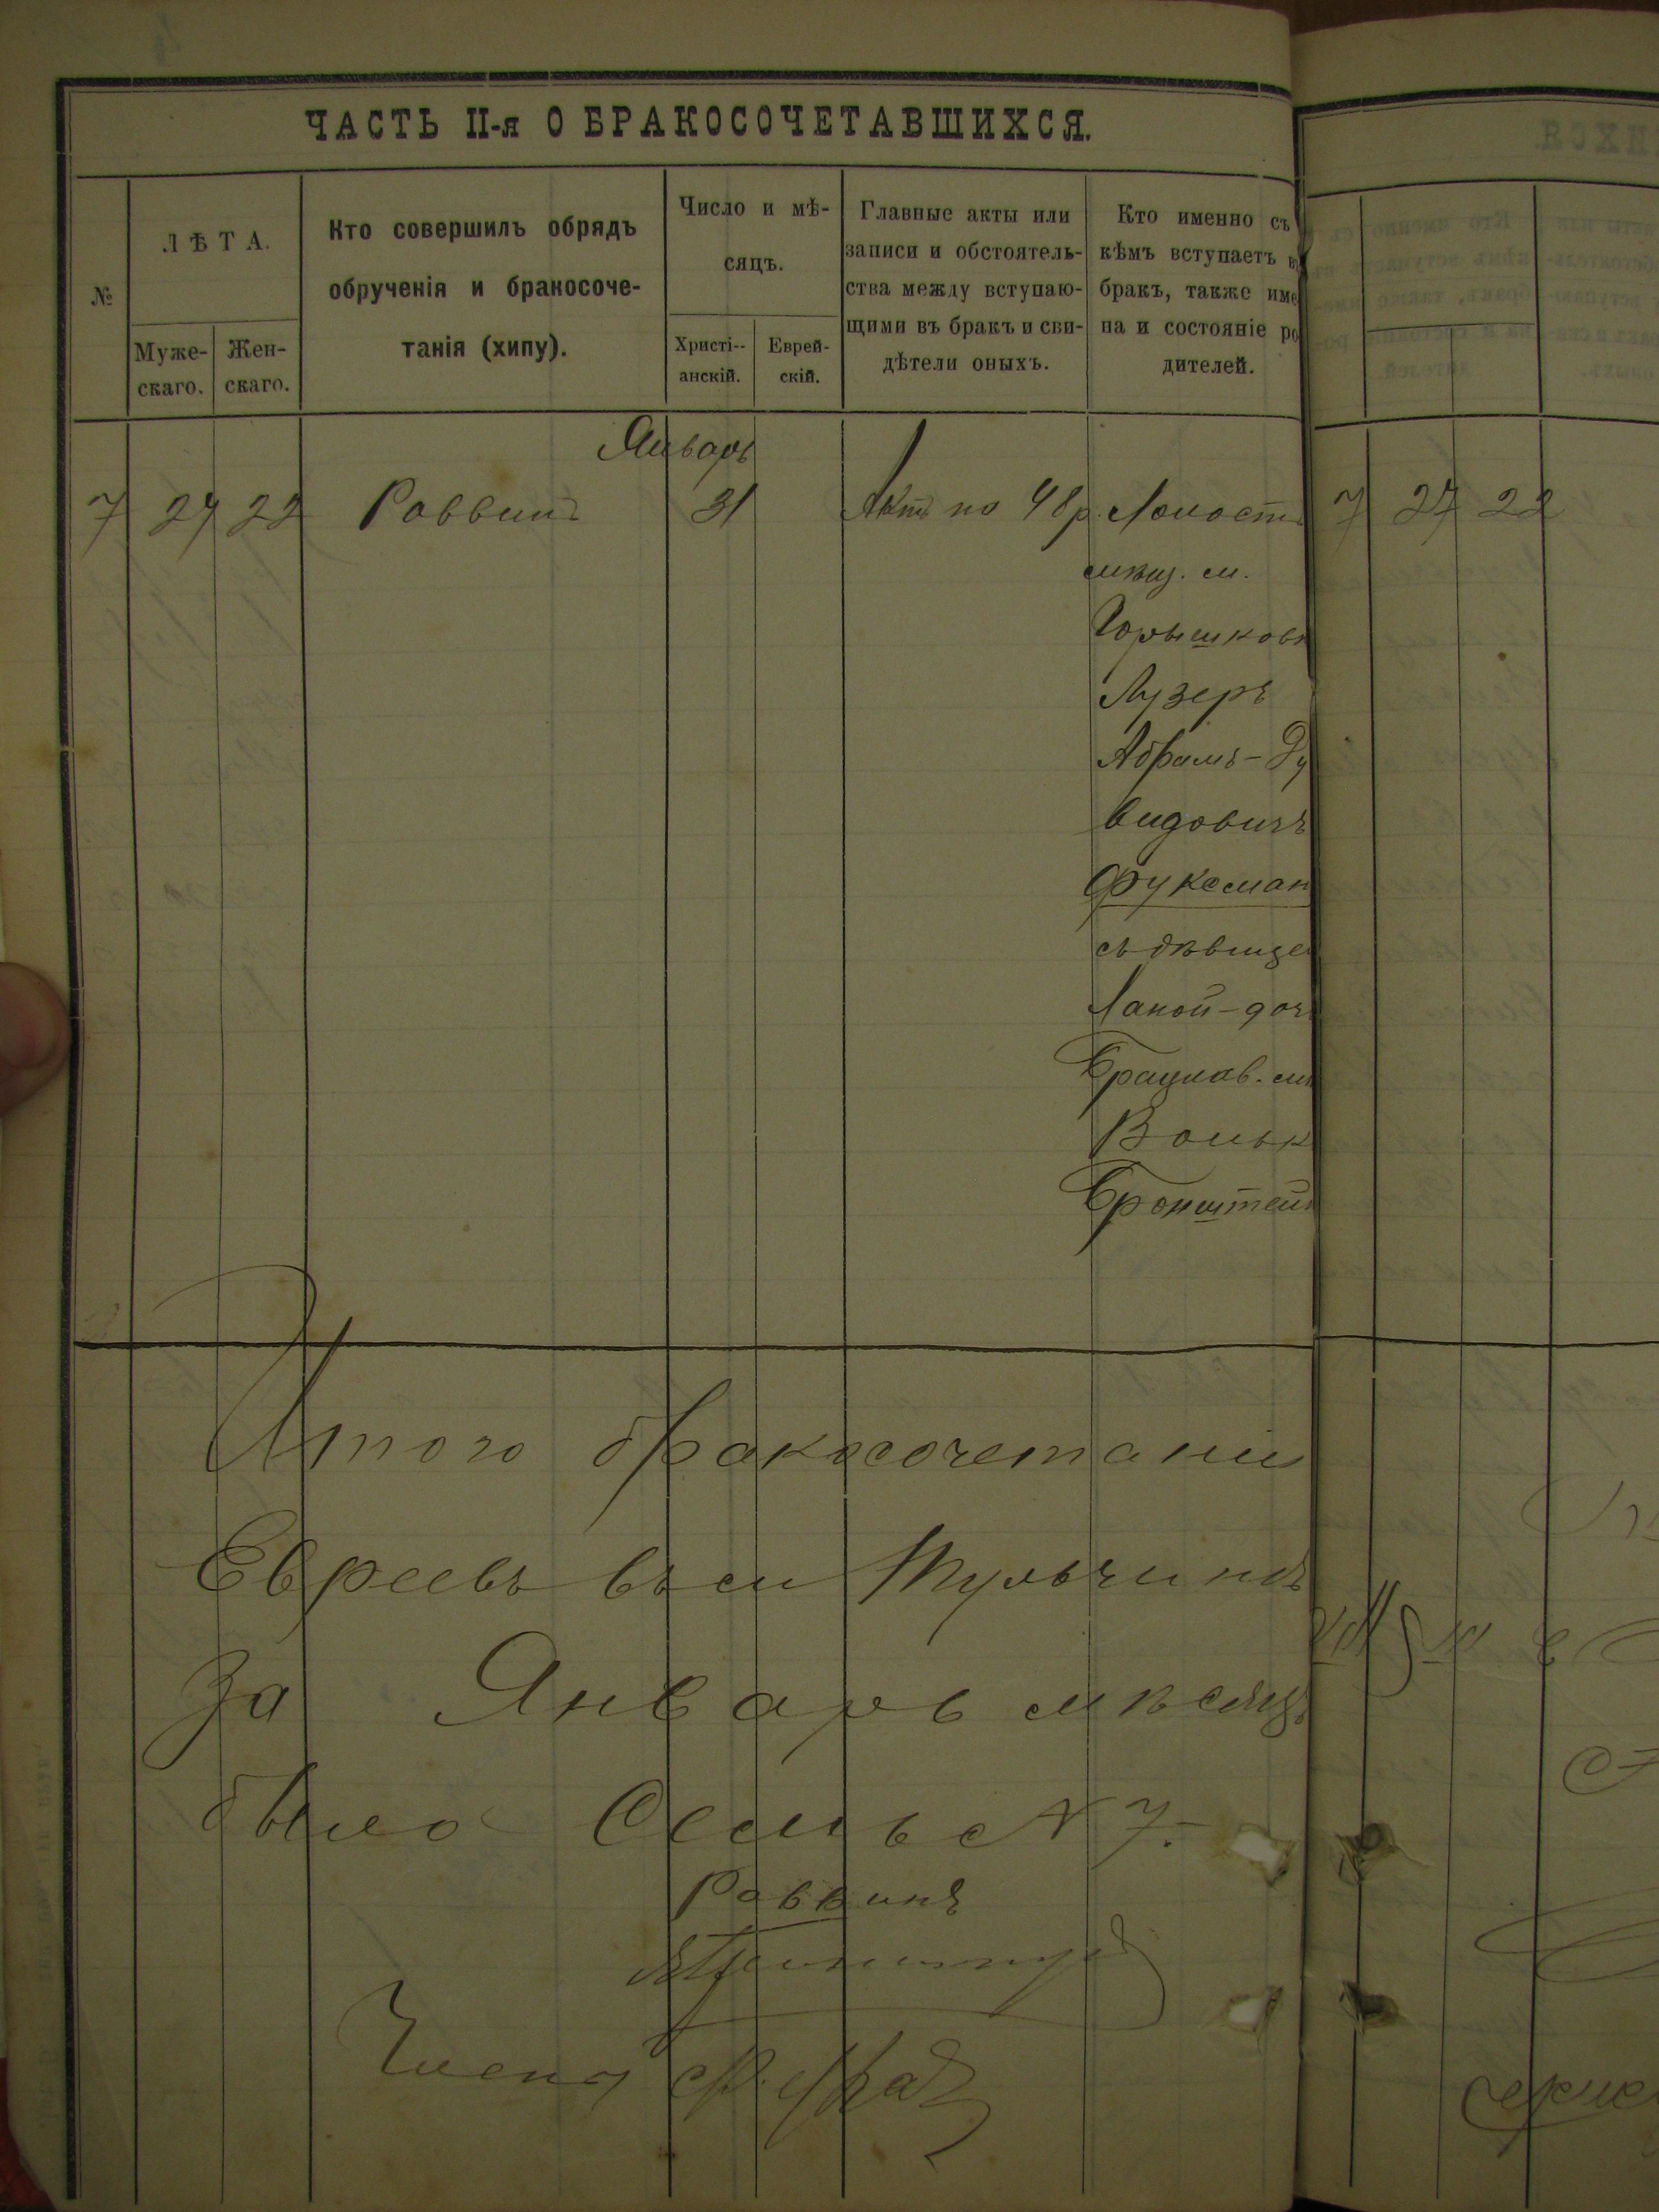 ЧАСТЬ II-я О БРАКОСОЧЕТАВШИХСЯ.
№
ЛѢТА.
Муже-
скаго.
Жен-
скаго.
Кто совершилъ обрядъ
обрученія и бракосоче-
танія (хипу).
Число и мѣ-
сяцъ.
Христі--
анскій.
Еврей-
скій.
Главные акты или
записи и обстоятель-
ства между вступаю-
щими въ бракъ и сви-
дѣтели оныхъ.
Кто именно съ
кѣмъ вступаетъ в
бракъ, также име
на и состояніе ро
дителей.
Январь
7 27 22 Раввинъ 31 Актъ на 48 р. Холостъ
мѣщ. м.
Горышковк
Лузеръ
Абрамъ-Ду
видовичъ
Фуксман
съ дѣвицей
Ханой-доч
Брацлав. мѣ
Вольк
Бронштейн
Итого бракосочетаній
Евреевъ въ м Тульчинѣ
За Январь мѣсяцъ
было Семь № 7.-
Раввинъ
Члены
7 27 22